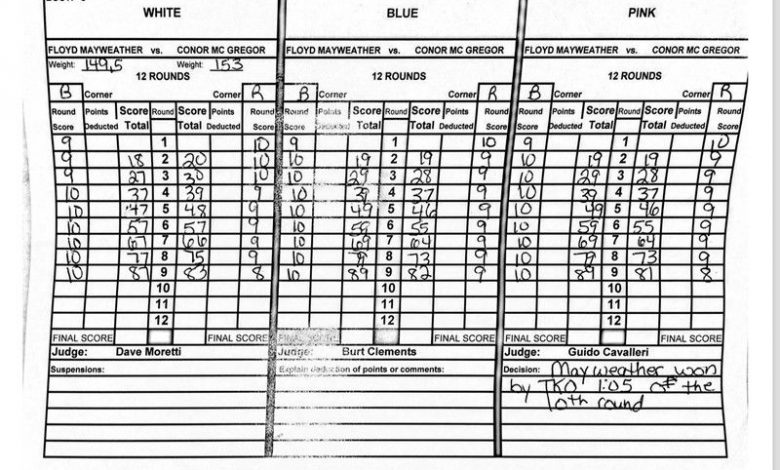 WHITE BLUE PINK
FLOYD MAYWEATHER vs. CONOR MC GREGOR FLOYD MAYWEATHER vs. CONOR MC GREGOR FLOYD MAYWEATHER vs. CONOR MC GREGOR
Weight: 149.5 Weight: 153
12 ROUNDS 12 ROUNDS 12 ROUNDS
B Corner Corner R B Corner Corner R B Corner Corner R
Round Points Score Round Score Points Round Round Points Score Round Score Points Round Round Points Score Round Score Points Round
Score Deducted Total Total Deducted Score Score Total Total Deducted Score Score Deducted Total Total Deducted Score
9 1 10 1 10 9 1 10
9 18 2 20 10 10 19 2 19 9 10 19 2 19 9
9 27 3 30 10 10 29 3 28 9 10 29 3 28 9
10 37 4 39 9 10 39 4 37 9 10 39 4 37 9
10 47 5 48 9 10 49 5 46 9 10 49 5 46 9
10 57 6 57 9 10 59 6 55 9 10 59 6 55 9
10 67 7 66 9 10 69 7 64 9 10 69 7 64 9
10 77 8 75 9 10 79 8 73 9 10 79 8 73 9
10 87 9 83 8 10 89 9 82 9 10 89 9 81 8
10 10 10
11 11 11
12 12 12
FINAL SCORE FINAL SCORE FINAL SCORE FINAL SCORE FINAL SCORE
Judge: Dave Moretti Judge: Burt Clements Judge: Guido Cavalleri
Suspensions: Explain deduction of points or comments: Decision: Mayweather won
by TKO 1:05 of the
10th round